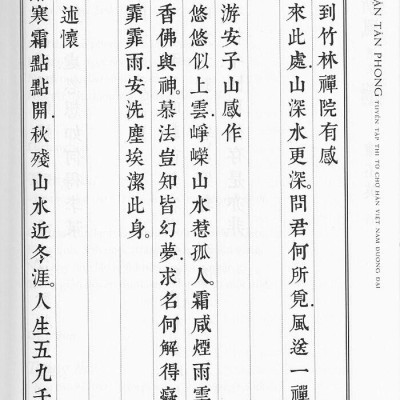 ẬN TÂN PHONG TUYỂN TẬP THI TỪ CHỮ HÁN VIỆT NAM ĐƯƠNG ĐẠI
到竹林禪院有感
來此處.山深水更深。問君何所覓.風送一禪
游安子山感作
悠悠似上雲.崢嶸山水惹孤人。霜咸煙雨雲
香佛與神。慕法豈知皆幻夢.求名何解得癡
霏霏雨.安洗塵埃潔此身。
述懷
寒霜點點開.秋殘山水近冬涯。人生五九千